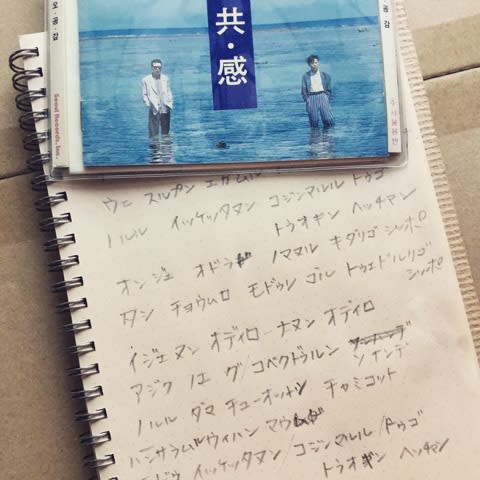 오·공감
共・感
Seoul Records, Inc.
ウニ スルプン エガムル
ノルル イッケッタマン コジンマルル トゥゴ
トゥオギン ヘッチマン
オンジェ オドラド ノマヌル キダリゴ シッポ
タシ チョウムロ モドゥル ゴル トゥエドルリゴ
シッポ
イジェ ヌン オディロ ナヌン オディロ
アジク ノエ グ/コベクトゥルン
ソナンデ
ノルル ダマ チュオットン チャミコット
ハンサラムル ウィハン マウムド
イッケッタマン/コジンマルル/トゥゴ
トゥオギン ヘッチマン